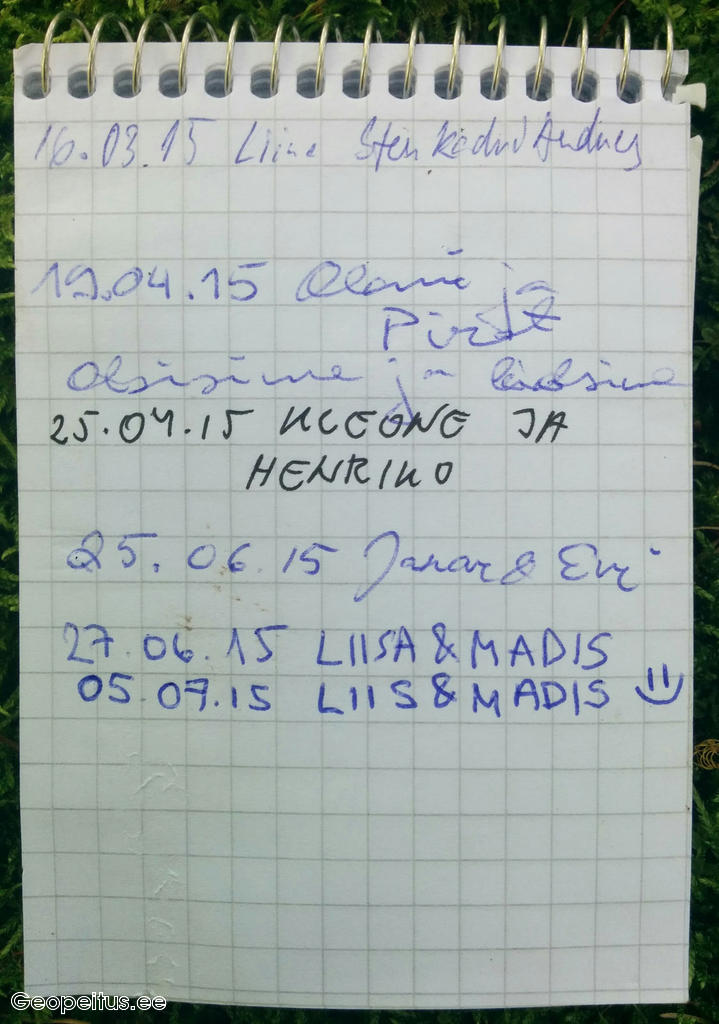 16.03.15 Liina Sten Kadri Andres
19.04.15 ja
Piret
Otsisime ja leidsime
25.04.15 KLEONE JA
HENRIKO
25.06.15 Janar & Evi
27.06.15 LIISA & MADIS
05.07.15 LIIS & MADIS
Geopeitus.ee